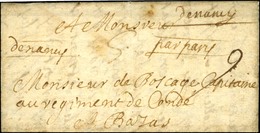 A Monsieur
denancy
denancy
par paris
9
Monsieur de Boscage Capitaine
au regiment de Condé
A Bazas